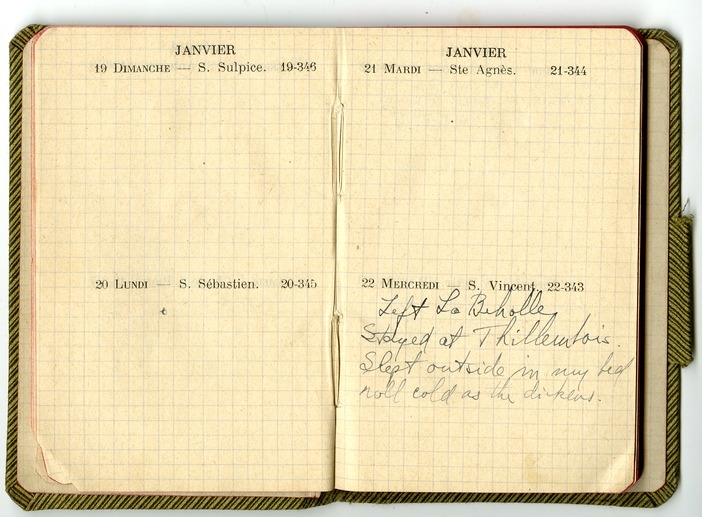 JANVIER
19 DIMANCHE — S. Sulpice. 19-346
20 LUNDI — S. Sébastien. 20-345
JANVIER
21 MARDI — Ste Agnès. 21-344
22 MERCREDI — S. Vincent. 22-343
Left La Beholle
Stayed at Thillombois.
Slept outside in my bed
roll cold as the dickens.